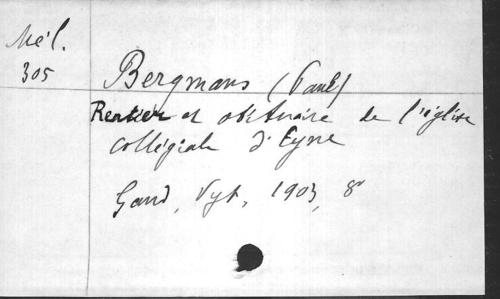 Mél.
305
Bergmans (Paul)
Rentier et obituaire de l'église
collégiale d'Eyne
Gand, Vyt, 1903, 8º